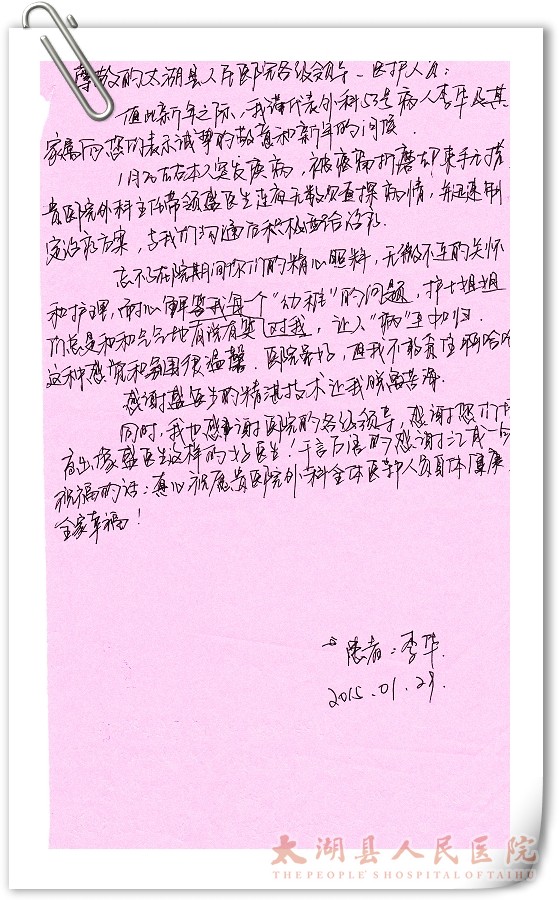 尊敬的太湖县人民医院各级领导、医护人员：
值此新年之际，我谨代表外科53主病人李华及其
家属向您们表示诚挚的敬意和新年的问候
1月20左右本人突发疾病，被疼痛折磨却束手无措
贵医院外科主任带领盛医生连夜无数次查探病情，并迅速制
定治疗方案，与我们沟通后积极配合治疗
忘不了在院期间你们的精心照料，无微不至的关怀
和护理，耐心解答我每个“幼稚”的问题，护士姐姐
们总是和和气气地有说有笑对我，让人“病”至如归
这种感觉和氛围很温馨．医院虽好，但我不敢贪住啊哈哈
感谢盛医生的精湛技术让我脱离苦海
同时，我也感谢医院的各级领导，感谢您们
育出像盛医生这样的好医生！千言万语的感谢汇成一句
祝福的话：真心祝愿贵医院外科全体医护人员身体健康
全家幸福！
患者：李华
2015.01.29
太湖县人民医院
THE PEOPLE'S HOSPITAL OF TAIHU